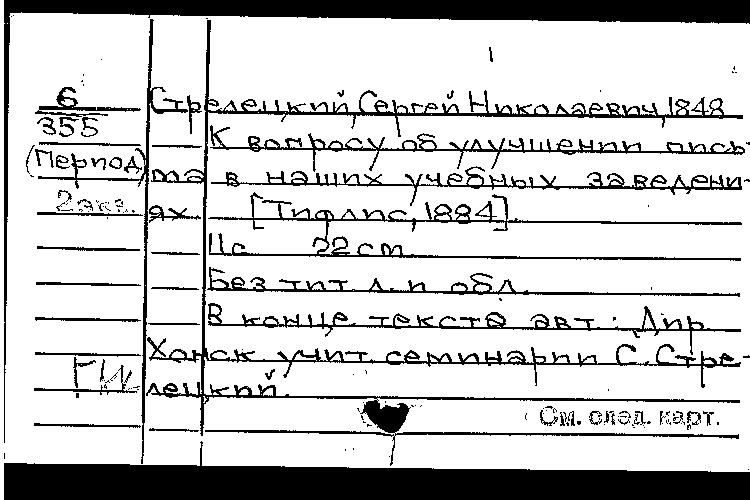 6
355
(Период)
2 экз.
Стрелецкий, Сергей Николаевич, 1848
К вопросу об улучшении пись-
ма в наших учебных заведени-
ях [Тифлис, 1884].
11с 22 см
Без тит л. и обл.
В конце текста авт: Дир
Хонск учит. семинарии С. Стре-
лецкий.
См. след. карт.